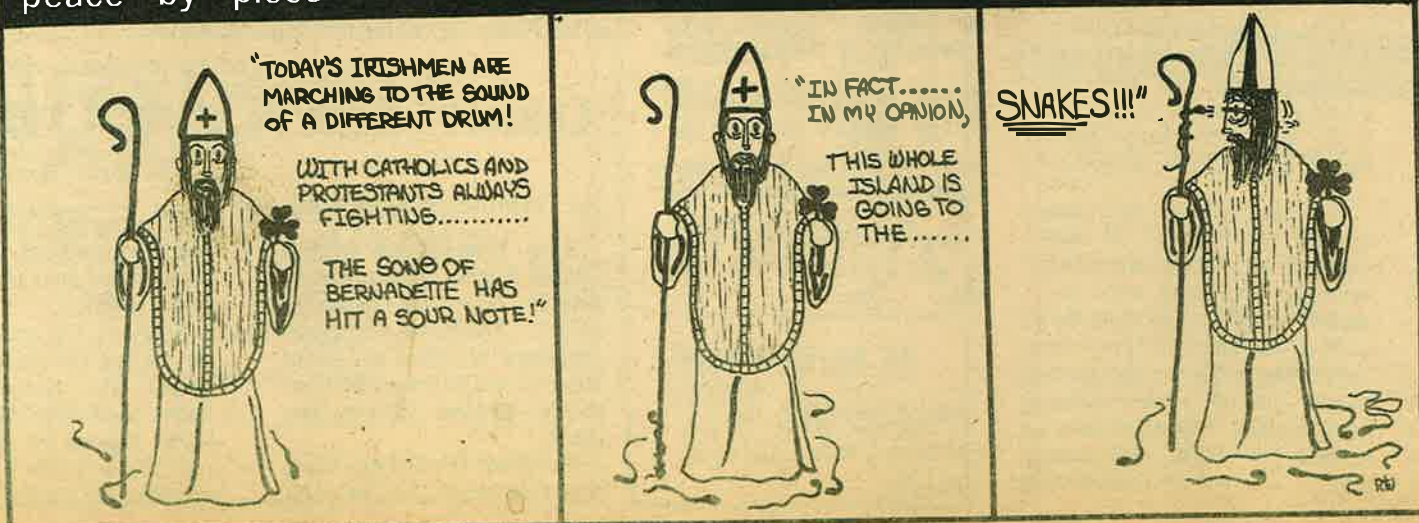 peace by piece
"TODAY'S IRISHMEN ARE
MARCHING TO THE SOUND
OF A DIFFERENT DRUM!
WITH CATHOLICS AND
PROTESTANTS ALWAYS
FIGHTING...........
THE SONG OF
BERNADETTE HAS
HIT A SOUR NOTE!"
"IN FACT......
IN MY OPINION,
THIS WHOLE
ISLAND IS
GOING TO
THE......
SNAKES!!!"